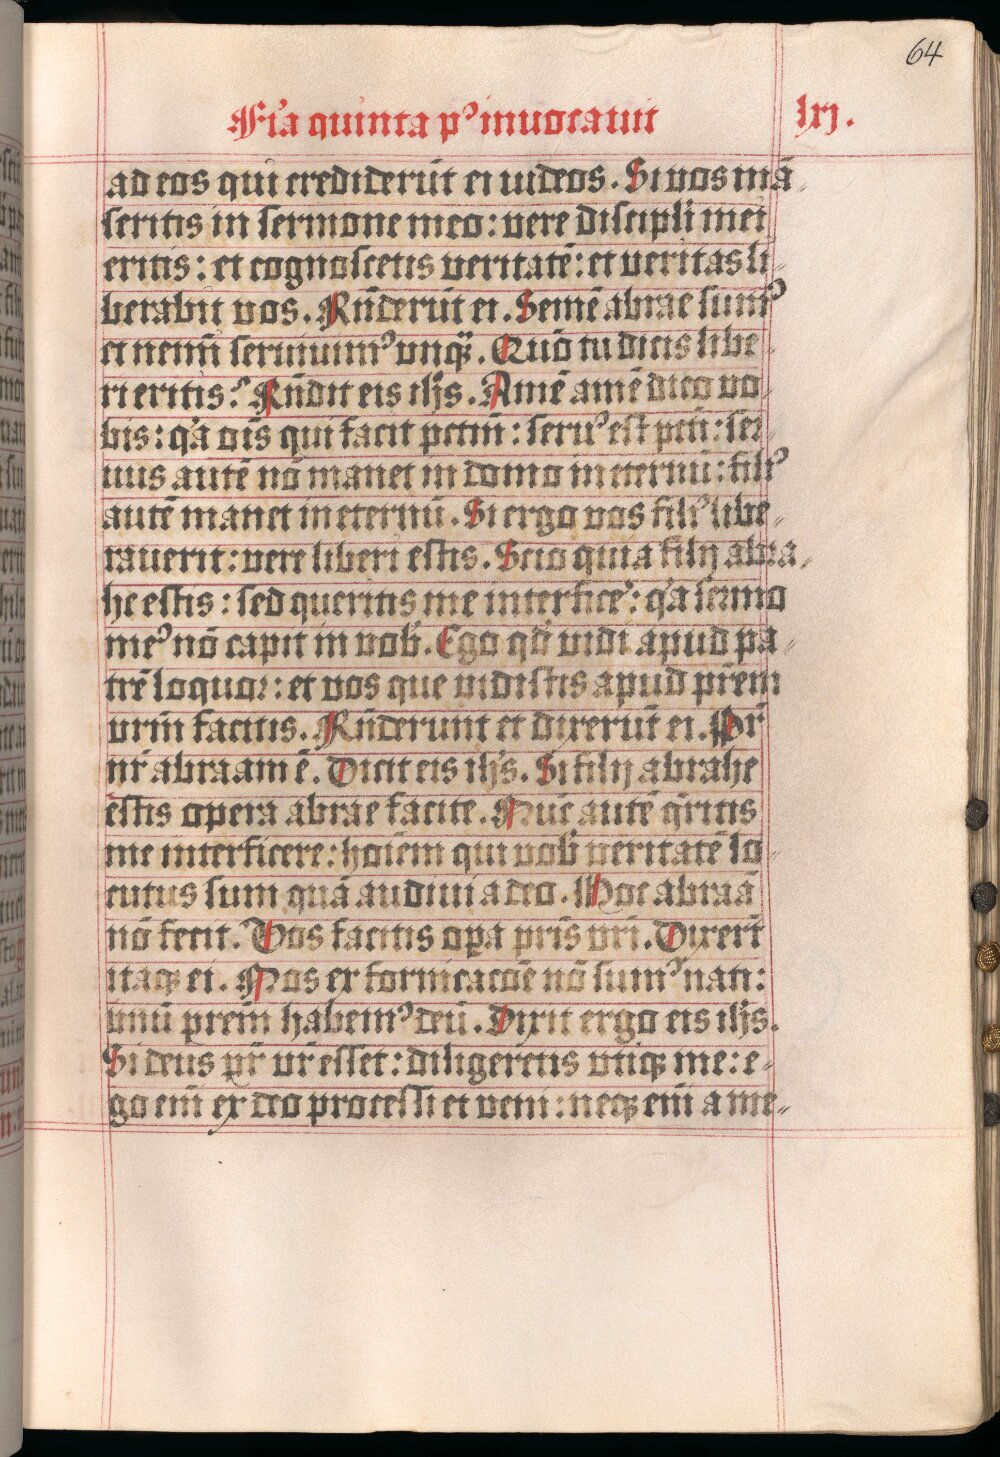 64
Fia quinta p⁹ inuocauit
lxj.
ad eos qui crediderūt ei iudeos. Si vos mā
seritis in sermone meo: vere discipli mei
eritis: et cognoscetis veritatē: et veritas li
berabit vos. Rn̄derūt ei. Semē abrae sum⁹
et nemī seruiuim⁹ vnqꝫ. Quō tu dicis libe
ri eritis? Rn̄dit eis ih̄s. Amē amē dico vo
bis: qꝛa oīs qui facit pctm̄: seru⁹ est pcti: ser
uus autē nō manet in domo in eternū: fili⁹
autē manet in eternū. Si ergo vos fili⁹ libe
rauerit: vere liberi estis. Scio quia filij abra
he estis: sed queritis me interfice᷑: qꝛa sermo
me⁹ nō capit in vob᷑. Ego qd̄ vidi apud pa
trē loquor: et vos que vidistis apud prēm
vrm̄ facitis. Rn̄derunt et dixerūt ei. Pr̄
nr̄ abraam ē. Dicit eis ih̄s. Si filij abrahe
estis opera abrae facite. Nūc autē q̄ritis
me interficere: hoīem qui vob᷑ veritatē lo
cutus sum quā audiui a deo. Hoc abraā
nō fecit. Vos facitis opa pr̄is vr̄i. Dixert̄
itaqꝫ ei. Nos ex fornicacōe nō sum⁹ nati:
vnū prēm habem⁹ deū. Dixit ergo eis ih̄s.
Si deus pr̄ vr̄ esset: diligeretis vtiqꝫ me: e
go em̄ ex deo processi et veni: neqꝫ em̄ a me